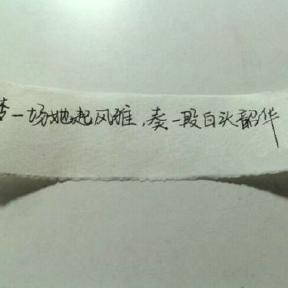 一场她起风雅,奏一段白头韶华